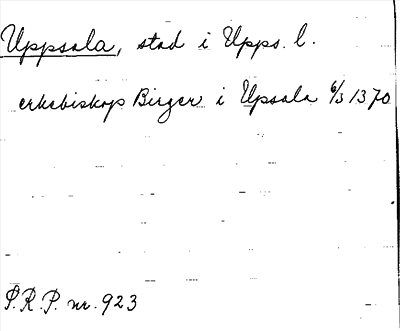 Uppsala, stad i Upps. l.
erkebiskop Birger i Upsala 6/3 1370
P.R.P. nr. 923